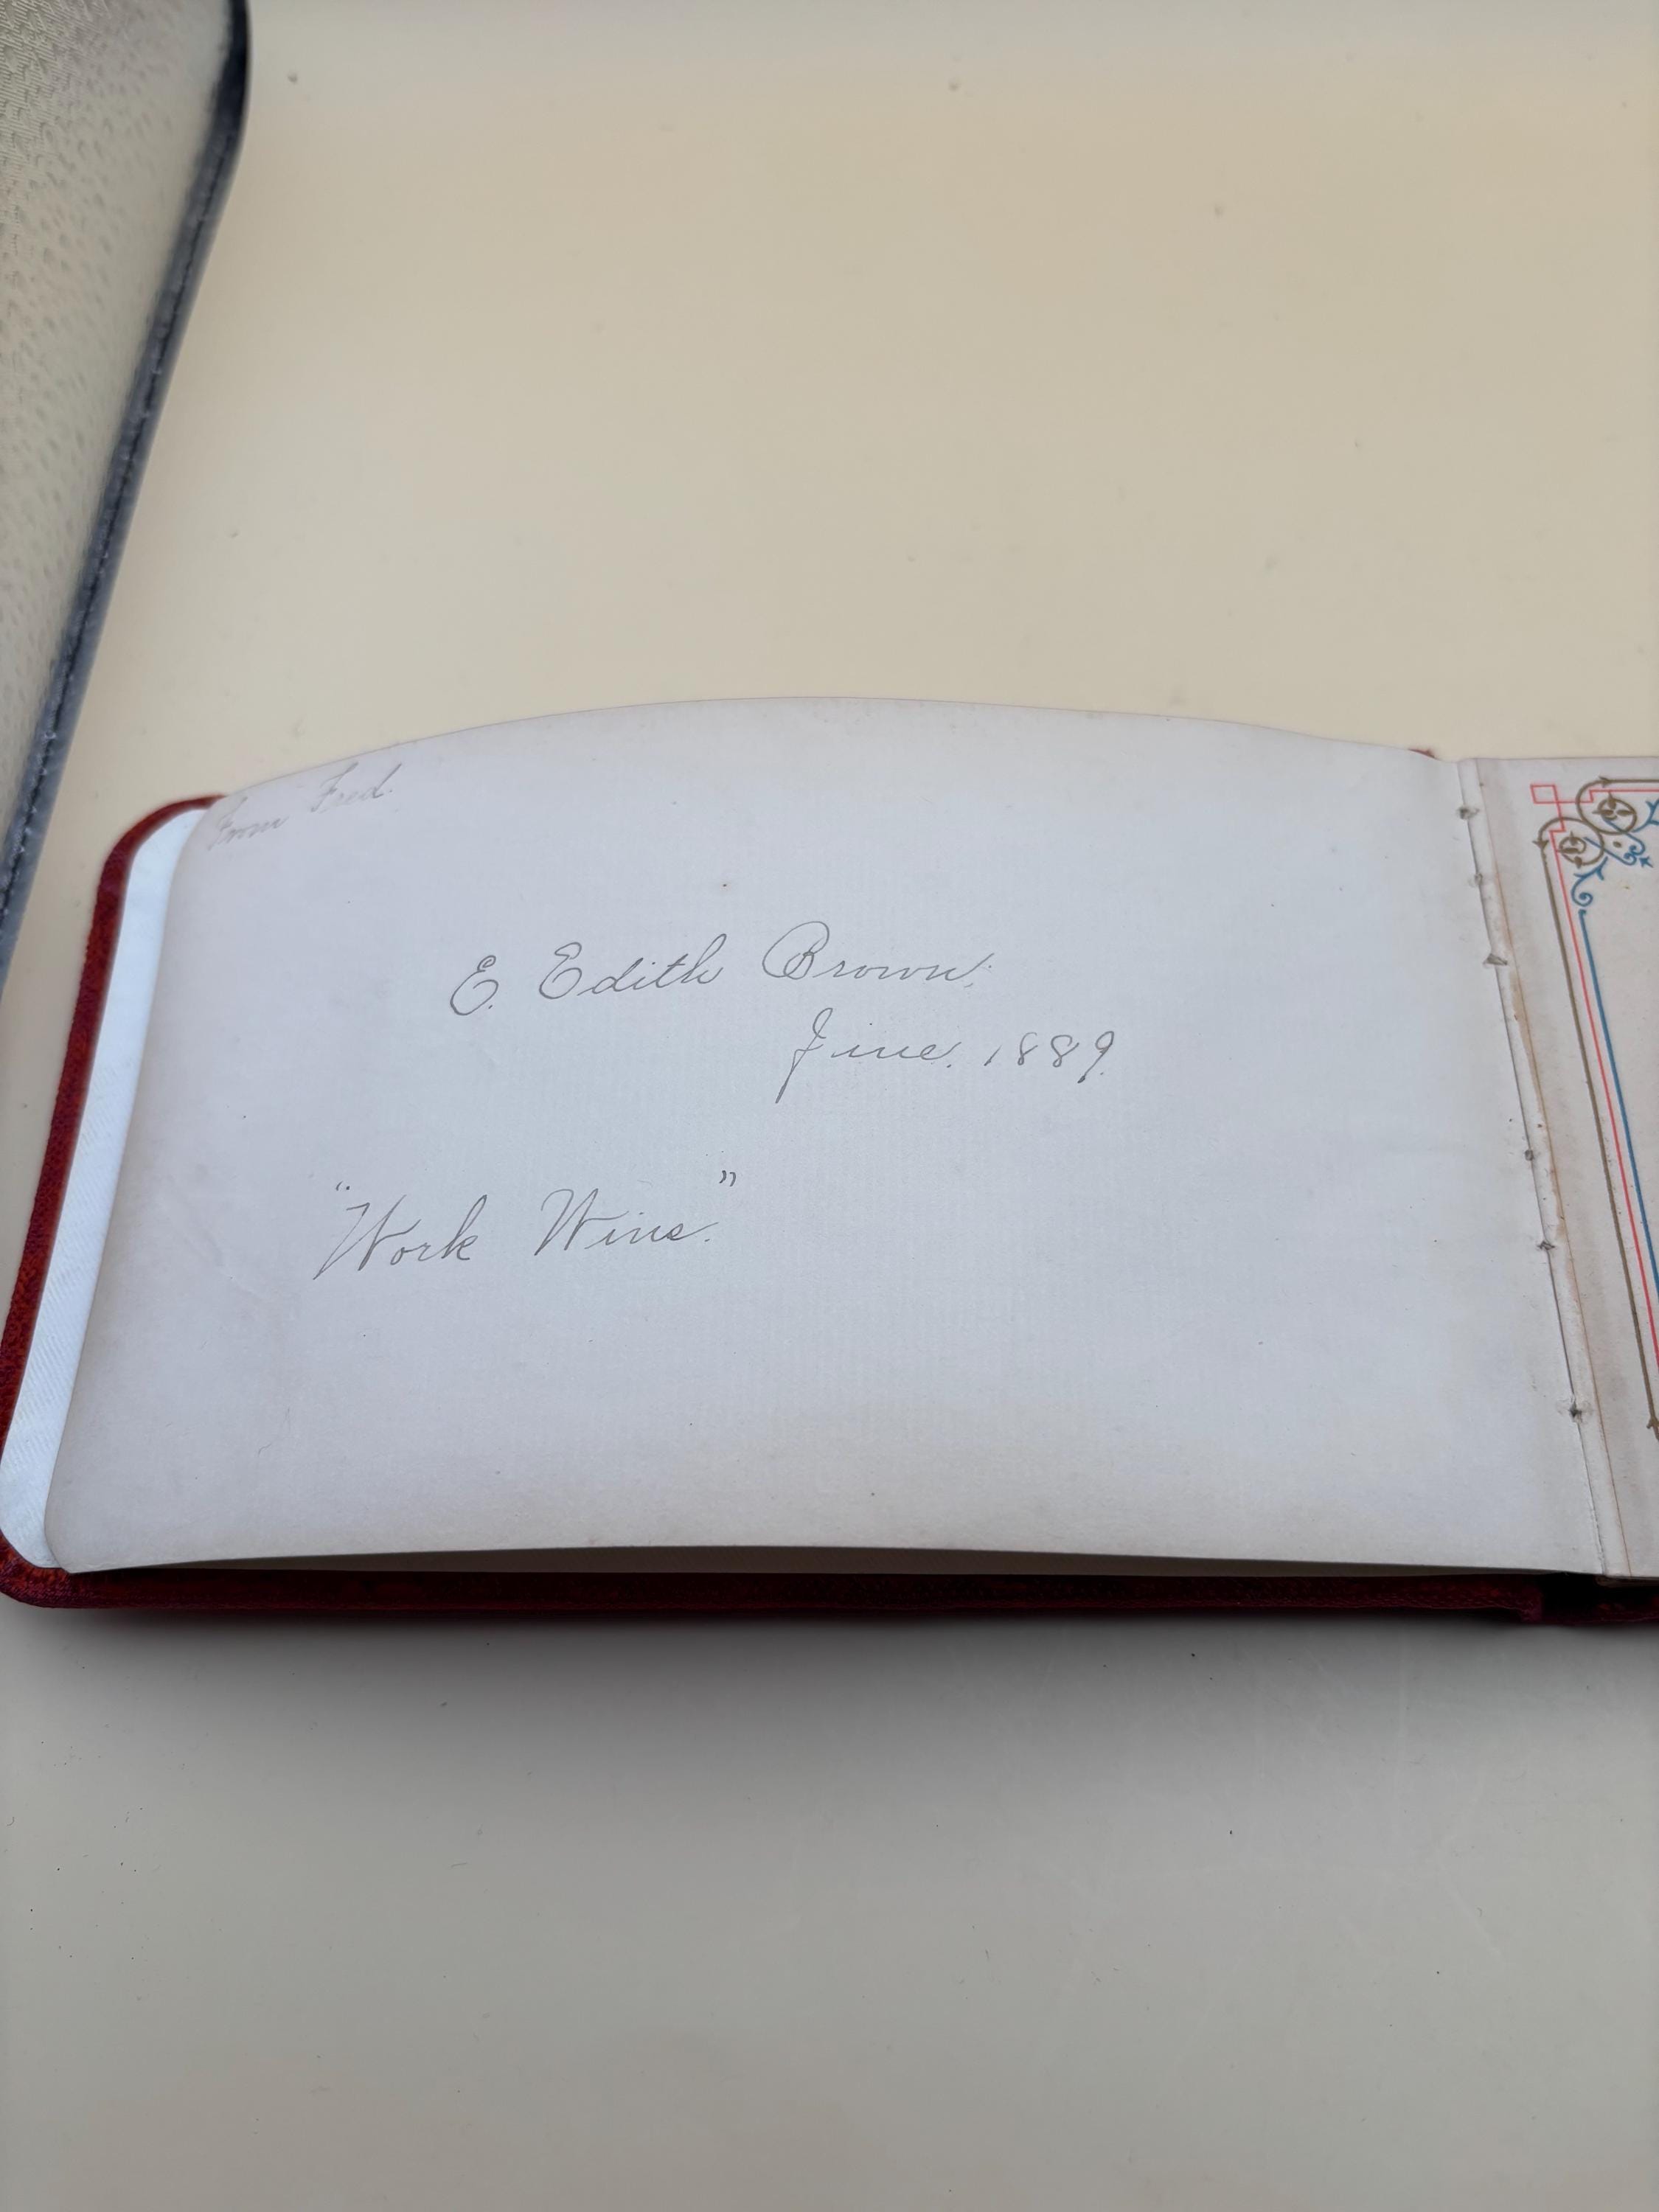 From Fred.
E. Edith Brown.
June. 1889.
"Work Wins."